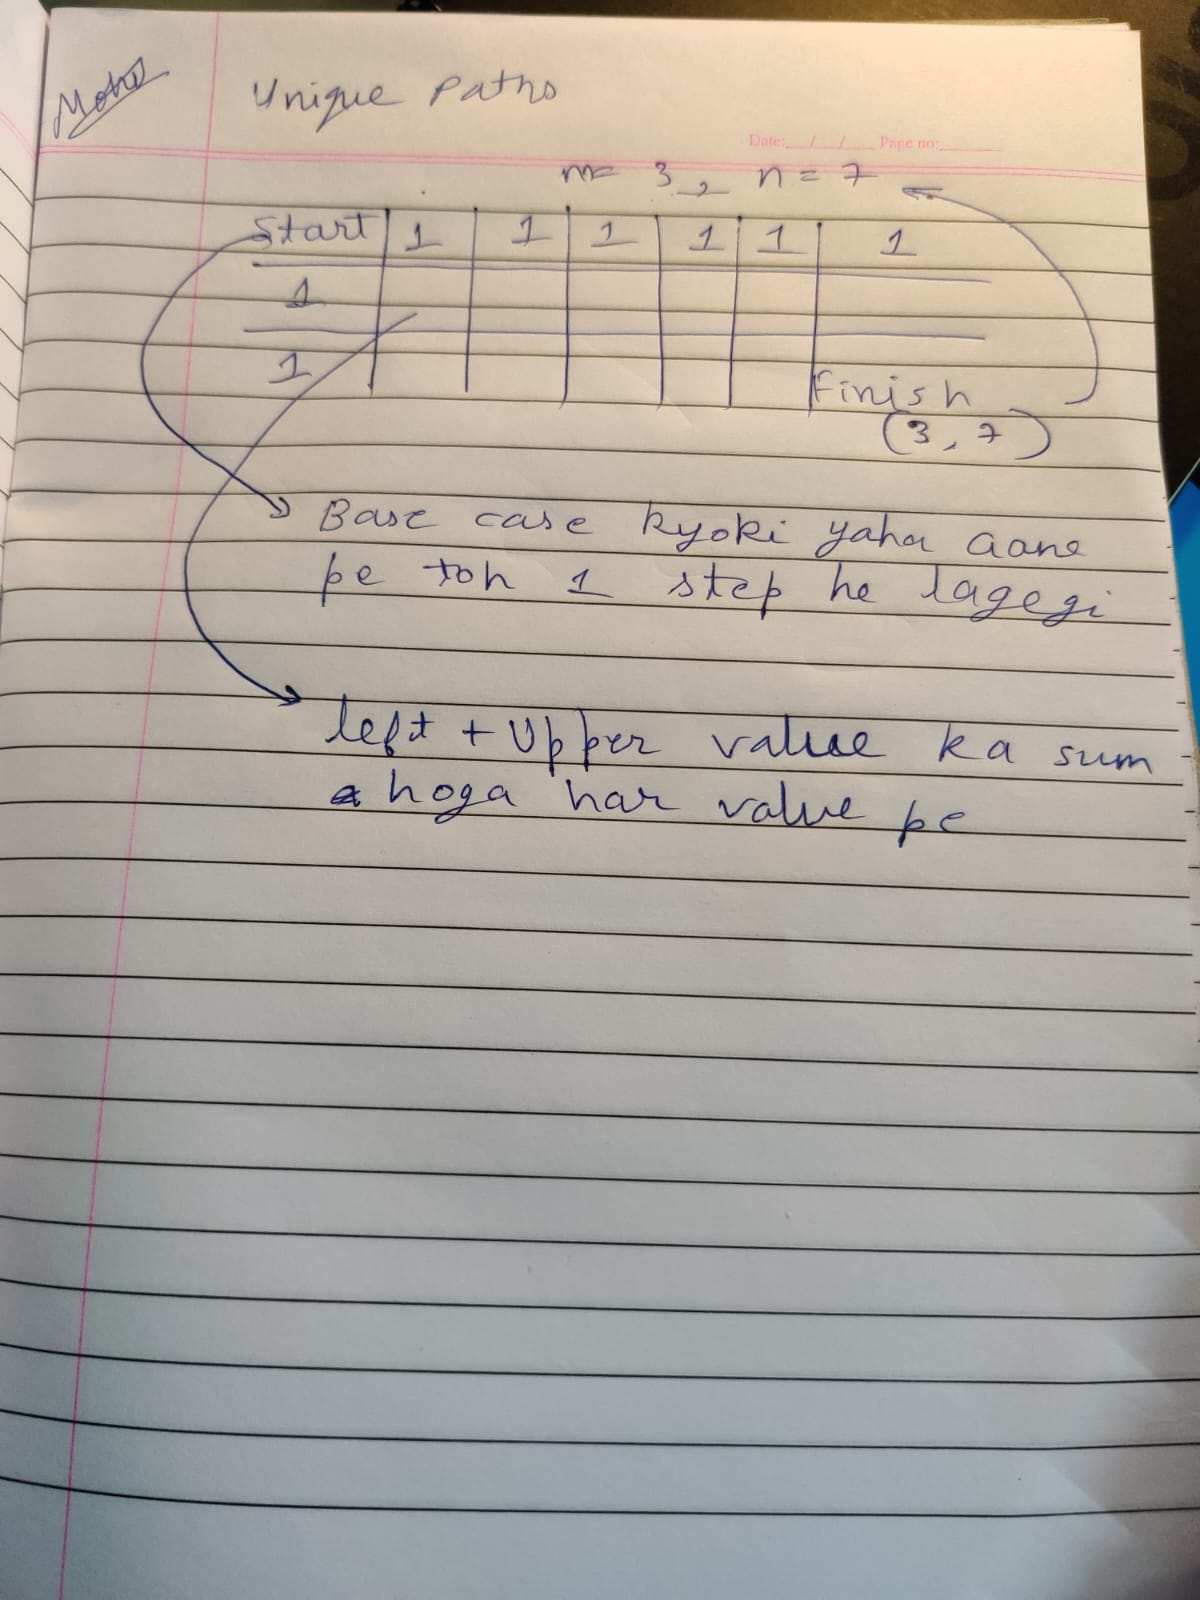 Unique Paths
Date: / / Page no:
m= 3, n = 7
Start 1 1 1 1 1 1
1
1
Finish
(3, 7)
Base case kyoki yaha aane
pe toh 1 step he lagegi
left + Upper value ka sum
hoga har value pe